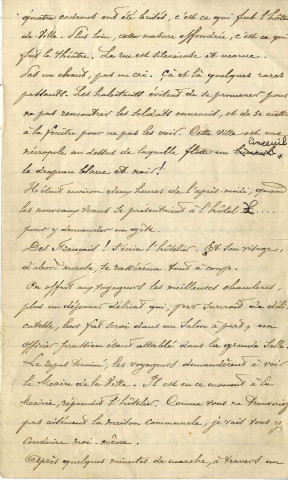 quatre cadrans ont été brisés, c'est ce qui fut l'hôtel
de Ville. Plus loin, cette masure effondrée, c'est ce qui
fut le théâtre. La rue est silencieuse et morne.
Pas un chant, pas un cri. Çà et là quelques rares
passants. Les habitants évitent de se promener pour
ne pas rencontrer les soldats ennemis, et de se mettre
à la fenêtre pour ne pas les voir. Cette ville est une
nécropole au dessus de laquelle flotte un linceuil :
le drapeau blanc et noir !
Il était environ deux heures de l'après-midi, quand
les nouveaux venus se présentaient à l'hôtel X....
pour y demander un gîte.
Des Français ! s'écria l'hôtelier. Et son visage,
d'abord morose, se rasséréna tout à coup.
On offrit aux voyageurs les meilleures chambres,
plus un déjeuner délicat qui, par surcroît de déli-
catesse, leur fut servi dans un salon à part, un
officier prussien étant attablé dans la grande salle.
Le repas terminé, les voyageurs demandèrent à voir
le Maire de la Ville. Il est en ce moment à la
Mairie, répondit l'hôtelier. Comme vous ne trouveriez
pas aisément la maison commune, je vais vous y
conduire moi-même.
Après quelques minutes de marche, à travers un